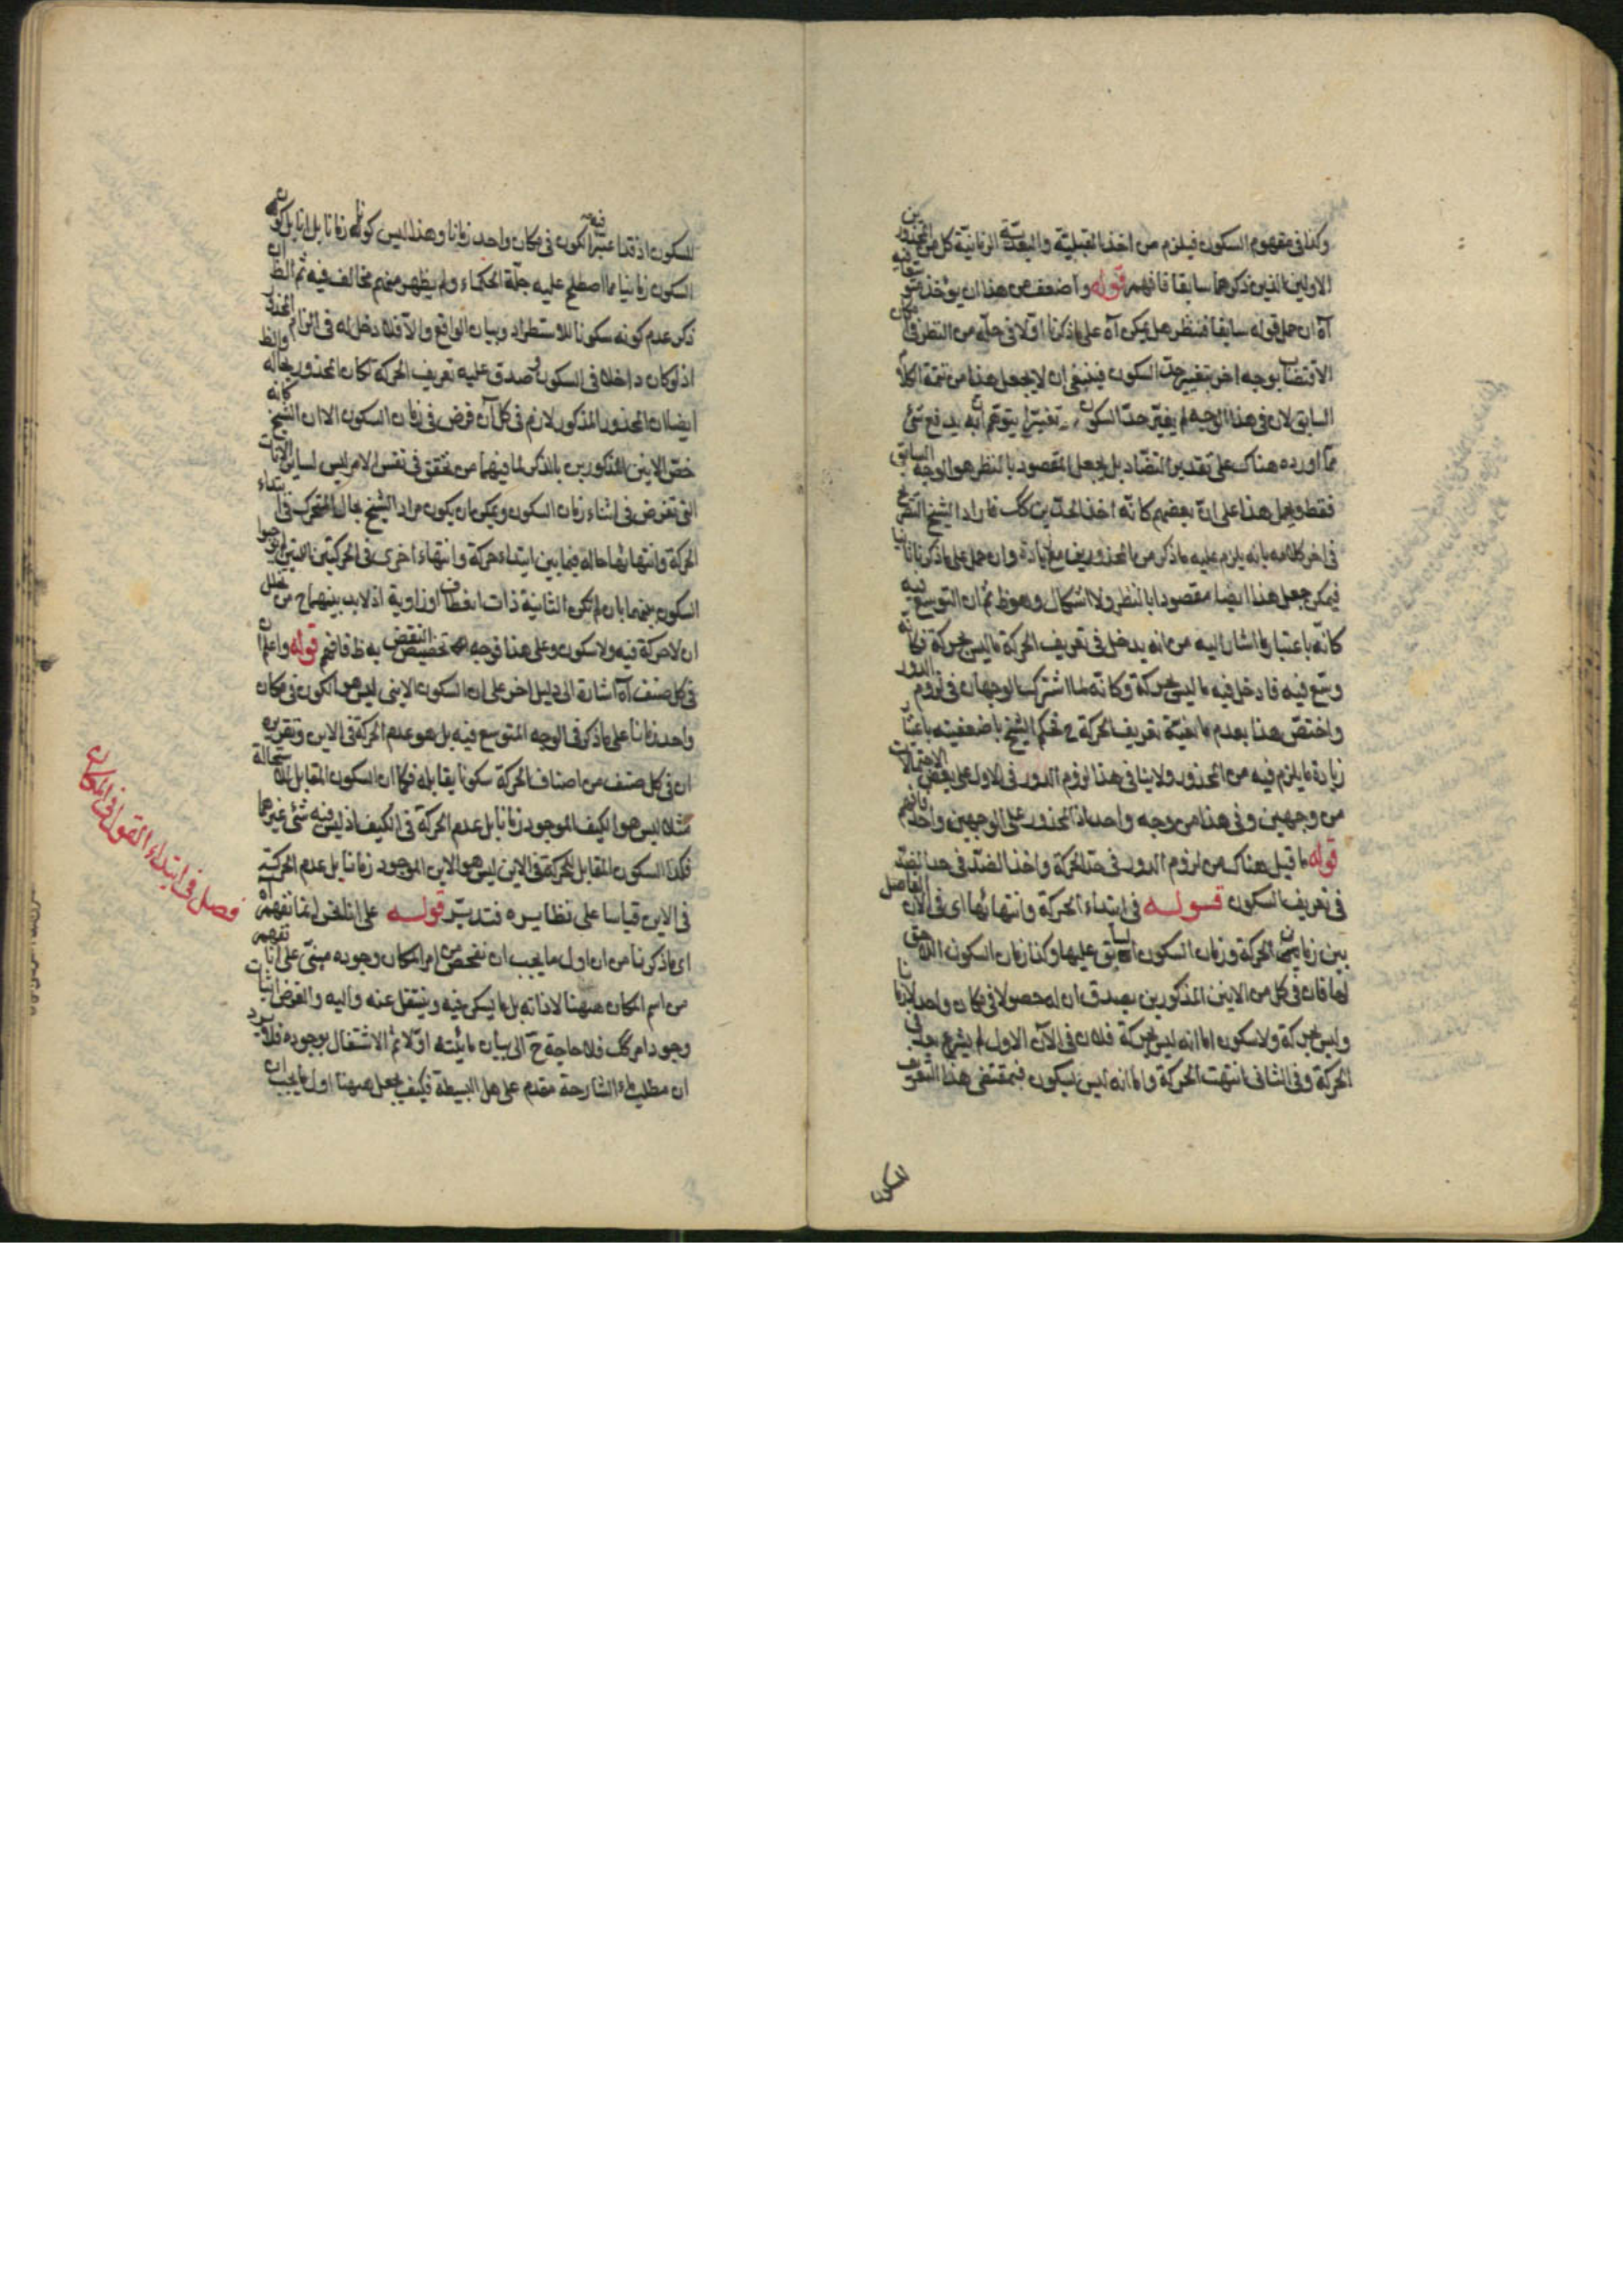 وكذا في مفهوم السكون فيلزم من اخذ القبلية والبعدية الزمانية كل من المحذورين
الاولين الذين ذكرهما سابقا فافهم قوله واضعف من هذا ان يؤخذ متوسعا فيه
آه ان حمل قوله سابقا فننظر هل يمكن آه على ما ذكرنا اولا في حله من النظر في امكان
الاقتضاب بوجه اخر بتغيير حد السكون فينبغي ان لا يجعل هذا من تتمة الكلام
السابق لان في هذا الوجه لم يغير حد السكون تغييرا يتوهم انه يدفع شئ
مما اورده هناك على تقدير التضاد بل يجعل المقصود بالنظر هو الوجه السابق
فقط ويحمل هذا على ان بعضهم كانه اخذ الحدين كك فاراد الشيخ
في اخر كلامه بانه يلزم عليه ما ذكر من المحذورين مع زيادة وان حمل على ما ذكرنا ثانيا
فيمكن جعل هذا ايضا مقصودا بالنظر ولا اشكال وهو ظ ثم ان التوسع فيه
كانه باعتبار ما اشار اليه من انه يدخل في تعريف الحركة ما ليس بحركة فكانه
وسع فيه فادخل فيه ما ليس بحركة وكانه لما اشترك الوجهان في لزوم الدور
واختص هذا بعدم مانعية تعريف الحركة ح فحكم الشيخ باضعفيته باعتبار
زيادة ما يلزم فيه من المحذور ولا ينافي هذا لزوم الدور في الاول على بعض الاحتمالات
من وجهين وفي هذا من وجه واحد اذ المحذور على الوجهين واحد فافهم
قوله ما قيل هناك من لزوم الدور في حد الحركة واخذ الضد في حد الضد
في تعريف السكون قوله في ابتداء الحركة وانتهائها اى في الآن الفاصل
بين زماني الحركة وزمان السكون السابق عليها وكذا زمان السكون اللاحق
لها فان في كل من الانين المذكورين يصدق ان له حصولا في مكان واحد لا زمانا
وليس بحركة ولا سكون اما انه ليس بحركة فلان في الآن الاول لم يشرع بعد في
الحركة وفي الثاني انتهت الحركة واما انه ليس بسكون فبمقتضى هذا التعريف
للسكون
للسكون اذ قد اعتبر فيه الكون في مكان واحد زمانا وهذا ليس كونه زمانا بل انا بل كون
السكون زمانيا مما اصطلح عليه جلة الحكماء ولم يظهر منهم مخالف فيه ثم الظ ان
ذكر عدم كونه سكونا للاستطراد وبيان الواقع والا فلا دخل له في الزام المحذور
اذ لو كان داخلا في السكون وصدق عليه تعريف الحركة لكان المحذور بحاله والظ
ايضا ان المحذور المذكور لازم في كل آن فرض في زمان السكون الا ان الشيخ كانه
خص الانين المذكورين بالذكر لما فيهما من تحقق في نفس الامر ليس لساير الآنات
التي تفرض في اثناء زمان السكون ويمكن ان يكون مراد الشيخ بحال المتحرك في ابتداء
الحركة وانتهائها حاله فيما بين ابتداء حركة وانتهاء اخرى في الحركتين اللتين لم يوجبوا
السكون بينهما بان لم تكن الثانية ذات انعطاف او زاوية اذ لا بد بينهما ح من تخلل
ان لا حركة فيه ولا سكون وعلى هذا فوجه تخصيص النقض به ظ فافهم قوله واعلم ان
في كل صنف آه اشارة الى دليل اخر على ان السكون الايني ليس هو الكون في مكان
واحد زمانا على ما ذكر في الوجه المتوسع فيه بل هو عدم الحركة في الاين وتقريره
ان في كل صنف من اصناف الحركة سكونا يقابله فكما ان السكون المقابل للاستحالة
مثلا ليس هو الكيف الموجود زمانا بل عدم الحركة في الكيف اذ ليس فيه شئ غيرهما
فكذا السكون المقابل للحركة في الاين ليس هو الاين الموجود زمانا بل عدم الحركة
في الاين قياسا على نظايره فتدبر قوله على اننا انما نفهم آه
اى ما ذكرنا من ان اول ما يجب ان نفحص من امر المكان وجوده مبني على انا نفهم
من اسم المكان ههنا لا ذاته بل ما يسكن فيه وينتقل عنه واليه والغرض اثبات
وجود امر كك فلا حاجة ح الى بيان مائيته اولا ثم الاشتغال بوجوده فلا يرد
ان مطلب ماء الشارحة مقدم على هل البسيطة فكيف جعل ههنا اول ما يجب ان
فصل في ابتداء القول في المكان